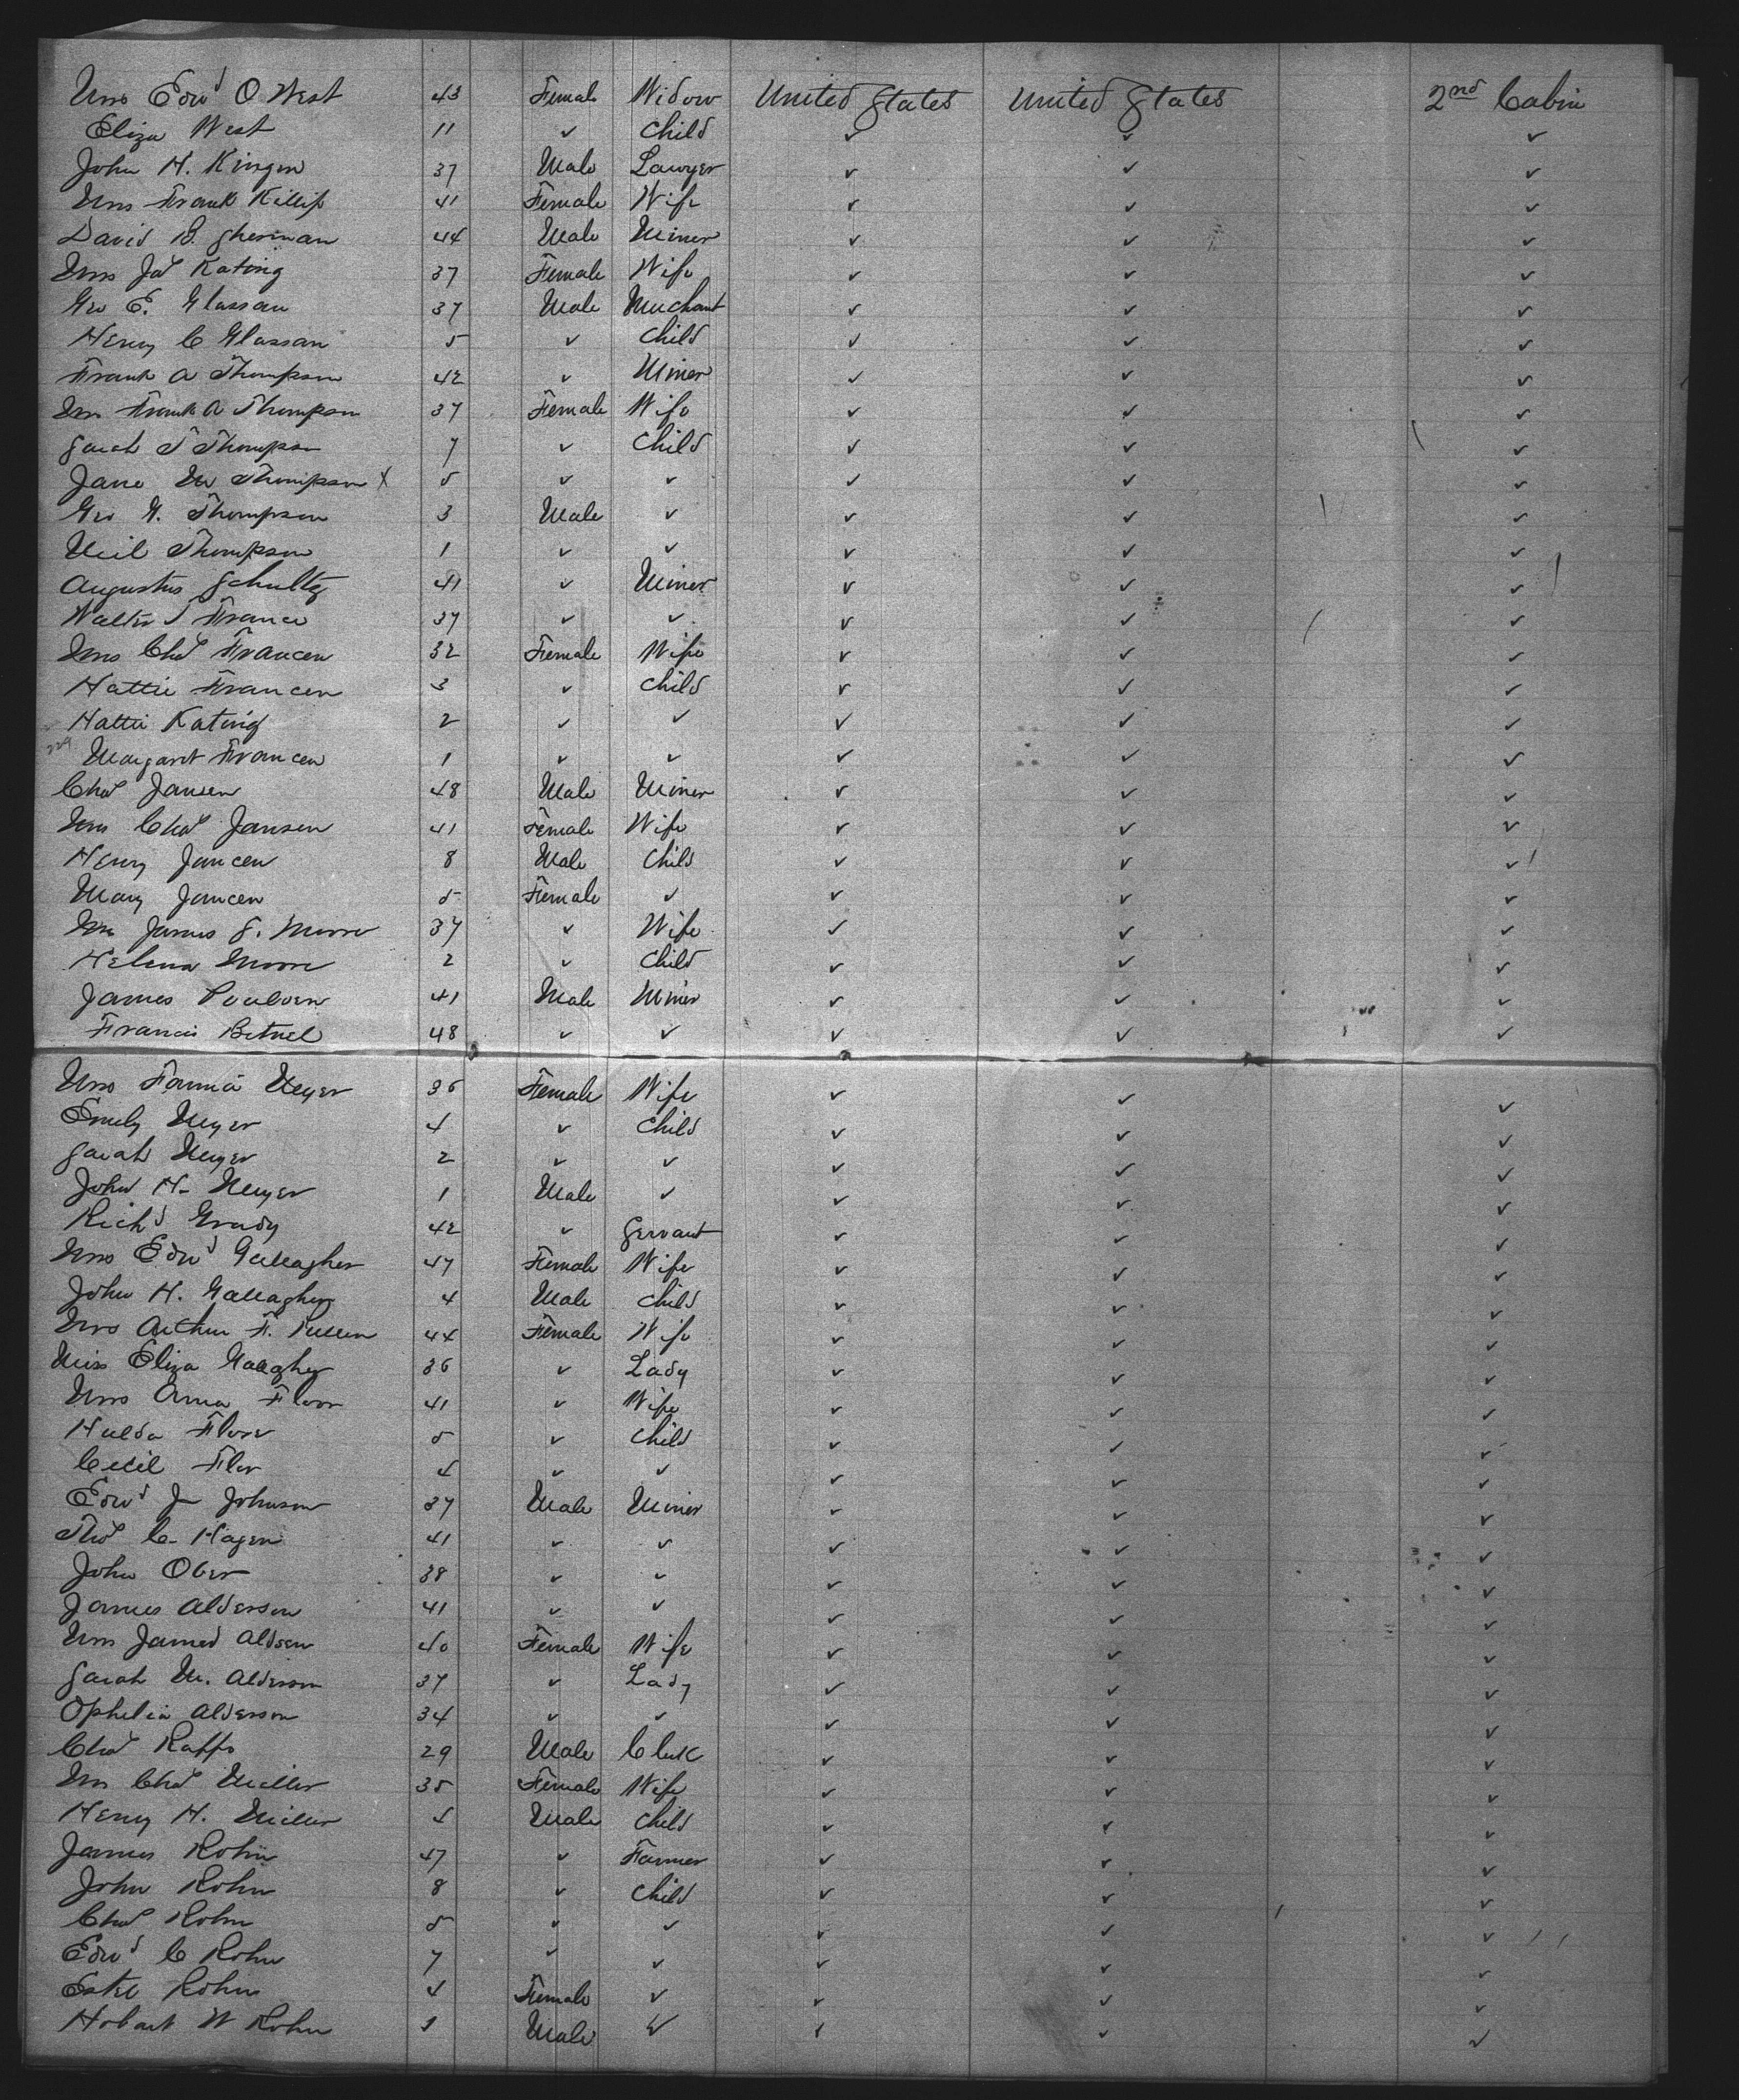 Mrs Edwd O West 43 Female Widow United States United States 2nd Cabin
Eliza West 11 ✓ Child ✓ ✓ ✓
John H. Kingen 37 Male Lawyer ✓ ✓ ✓
Mrs Frank Killip 41 Female Wife ✓ ✓ ✓
David B. Sherman 44 Male Miner ✓ ✓ ✓
Mrs Jas Kating 37 Female Wife ✓ ✓ ✓
Geo E. Glassan 37 Male Merchant ✓ ✓ ✓
Henry C Glassan 5 ✓ Child ✓ ✓ ✓
Frank A Thompson 42 ✓ Miner ✓ ✓ ✓
Mrs Frank A Thompson 37 Female Wife ✓ ✓ ✓
Sarah T Thompson 7 ✓ Child ✓ ✓ ✓
Jane M Thompson X 5 ✓ ✓ ✓ ✓ ✓
Geo G. Thompson 3 Male ✓ ✓ ✓ ✓
Neil Thompson 1 ✓ ✓ ✓ ✓ ✓
Augustus Schultz 41 ✓ Miner ✓ ✓ ✓
Walter S France 37 ✓ ✓ ✓ ✓ ✓
Mrs Chas Francen 32 Female Wife ✓ ✓ ✓
Hattie Francen 3 ✓ Child ✓ ✓ ✓
Hattie Kating 2 ✓ ✓ ✓ ✓ ✓
Margaret Francen 1 ✓ ✓ ✓ ✓ ✓
Chas Jansen 48 Male Miner ✓ ✓ ✓
Mrs Chas Jansen 41 Female Wife ✓ ✓ ✓
Henry Jancen 8 Male Child ✓ ✓ ✓
Mary Jancen 5 Female ✓ ✓ ✓ ✓
Mrs James S. Moore 37 ✓ Wife ✓ ✓ ✓
Helena Moore 2 ✓ Child ✓ ✓ ✓
James Poulsen 41 Male Miner ✓ ✓ ✓
Francis Betuel 48 ✓ ✓ ✓ ✓ ✓
Mrs Fannia Meyer 36 Female Wife ✓ ✓ ✓
Emily Meyer 4 ✓ Child ✓ ✓ ✓
Sarah Meyer 2 ✓ ✓ ✓ ✓ ✓
John H. Meyer 1 Male ✓ ✓ ✓ ✓
Richd Grady 42 ✓ Servant ✓ ✓ ✓
Mrs Edwd Gallagher 47 Female Wife ✓ ✓ ✓
John H. Gallagher 4 Male Child ✓ ✓ ✓
Mrs Arthur F. Pullen 44 Female Wife ✓ ✓ ✓
Miss Eliza 36 ✓ Lady ✓ ✓ ✓
Mrs Anna Floor 41 ✓ Wife ✓ ✓ ✓
Hulda Flore 5 ✓ Child ✓ ✓ ✓
Cecil Flor 4 ✓ ✓ ✓ ✓ ✓
Edwd J Johnson 37 Male Miner ✓ ✓ ✓
Thos C. Hagen 41 ✓ ✓ ✓ ✓ ✓
John Ober 38 ✓ ✓ ✓ ✓ ✓
James Alderson 41 ✓ ✓ ✓ ✓ ✓
Mrs James Aldsen 40 Female Wife ✓ ✓ ✓
Sarah M. Alderson 37 ✓ Lady ✓ ✓ ✓
Ophelia Alderson 34 ✓ ✓ ✓ ✓ ✓
Chas Rapp 29 Male Clerk ✓ ✓ ✓
Mrs Chas Miller 35 Female Wife ✓ ✓ ✓
Henry H. Miller 4 Male Child ✓ ✓ ✓
James Rohn 47 ✓ Farmer ✓ ✓ ✓
John Rohn 8 ✓ Child ✓ ✓ ✓
Chas Rohn 5 ✓ ✓ ✓ ✓ ✓
Edwd C Rohn 7 ✓ ✓ ✓ ✓ ✓
Estel Rohn 4 Female ✓ ✓ ✓ ✓
Hobart W Rohn 1 Male ✓ ✓ ✓ ✓